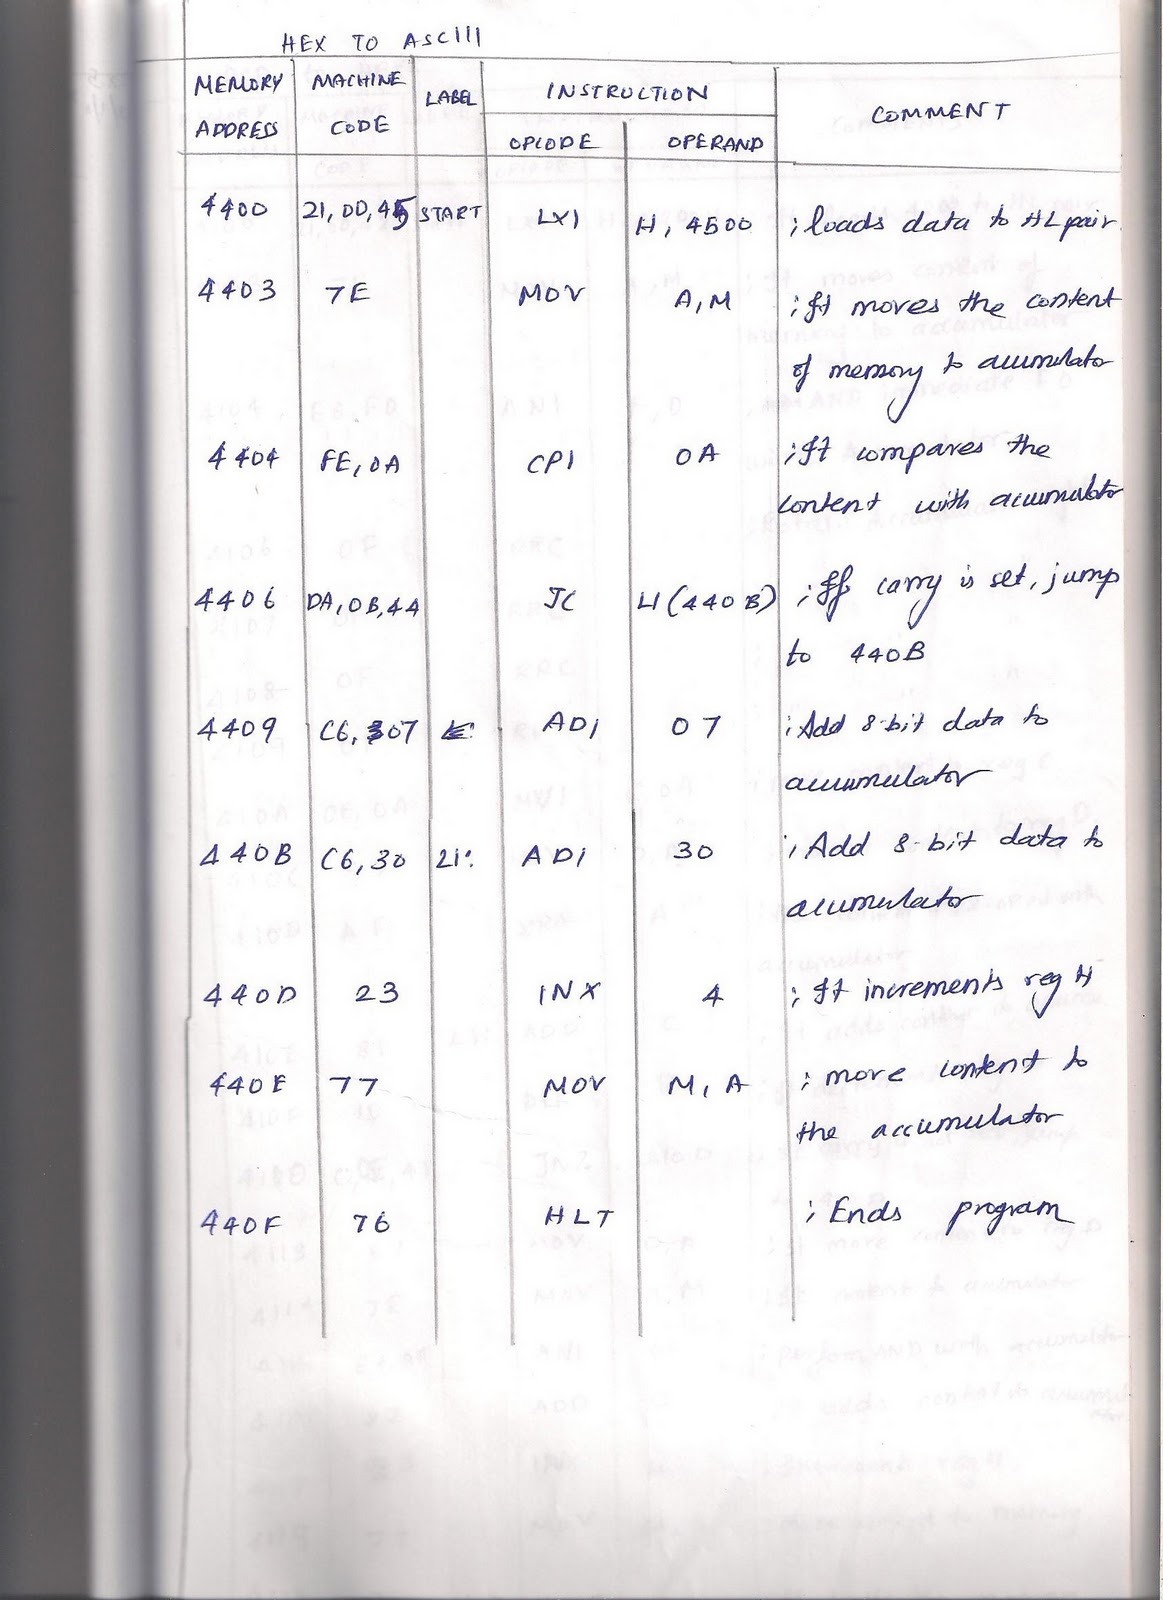 HEX TO ASCIII
MEMORY ADDRESS MACHINE CODE LABEL INSTRUCTION COMMENT
OPCODE OPERAND
4400 21,00,45 START LXI H, 4500 ; loads data to HL pair
4403 7E MOV A,M ; It moves the content
of memory to acumulator
4404 FE,0A CPI 0A ; It compares the
content with acumulator
4406 DA,0B,44 JC L1(440B) ; If carry is set, jump
to 440B
4409 C6,07 ADI 07 ; Add 8-bit data to
accumulator
440B C6,30 21: ADI 30 ; Add 8-bit data to
acumulator
440D 23 INX 4 ; It increments reg H
440E 77 MOV M, A ; move content to
the accumulator
440F 76 HLT ; Ends program